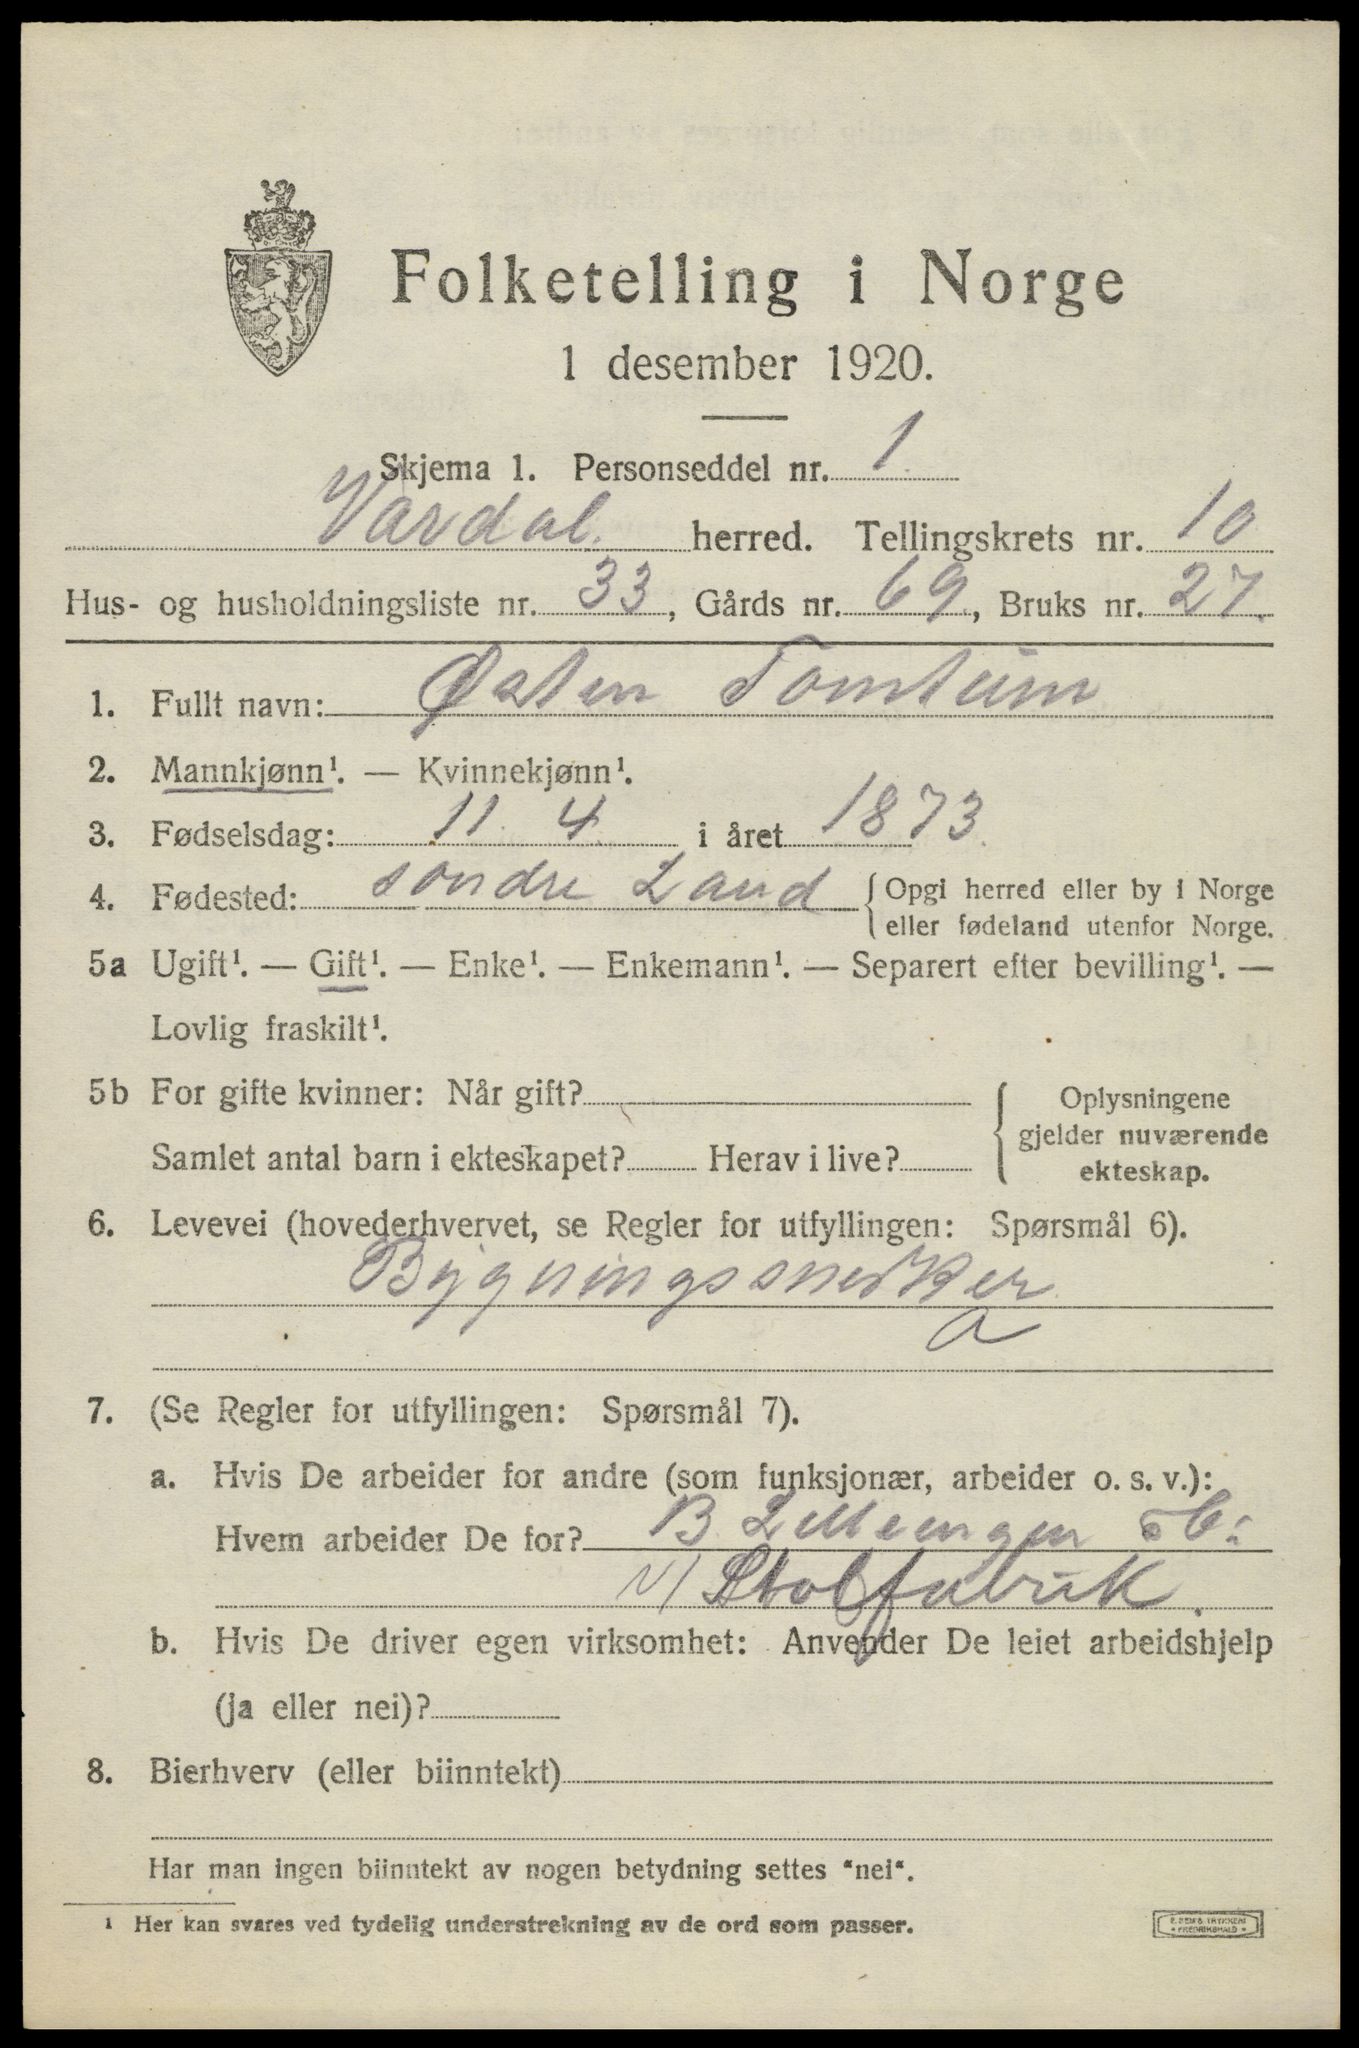 Folketelling i Norge
1 desember 1920.
Skjema 1. Personseddel nr. 1
Vardal herred. Tellingskrets nr. 10
Hus- og husholdningsliste nr. 33, Gårds nr. 69, Bruks nr. 27.
1. Fullt navn: Østen Tomtum
2. Mannkjønn¹. — Kvinnekjønn¹.
3. Fødselsdag: 11. 4. i året 1873.
4. Fødested: søndre Land { Opgi herred eller by i Norge
eller fødeland utenfor Norge.
5a Ugift¹. — Gift¹. — Enke¹. — Enkemann¹. — Separert efter bevilling¹. —
Lovlig fraskilt¹.
5b For gifte kvinner: Når gift?
Samlet antal barn i ekteskapet? Herav i live?
Oplysningene
gjelder nuværende
ekteskap.
6. Levevei (hovederhvervet, se Regler for utfyllingen: Spørsmål 6).
Bygningssnedker
a
7. (Se Regler for utfyllingen: Spørsmål 7).
a. Hvis De arbeider for andre (som funksjonær, arbeider o. s. v.):
Hvem arbeider De for? B. Lilleengen & Co
V/ Stolfabrik.
b. Hvis De driver egen virksomhet: Anvender De leiet arbeidshjelp
(ja eller nei)?
8. Bierhverv (eller biinntekt)
Har man ingen biinntekt av nogen betydning settes "nei".
¹ Her kan svares ved tydelig understrekning av de ord som passer.